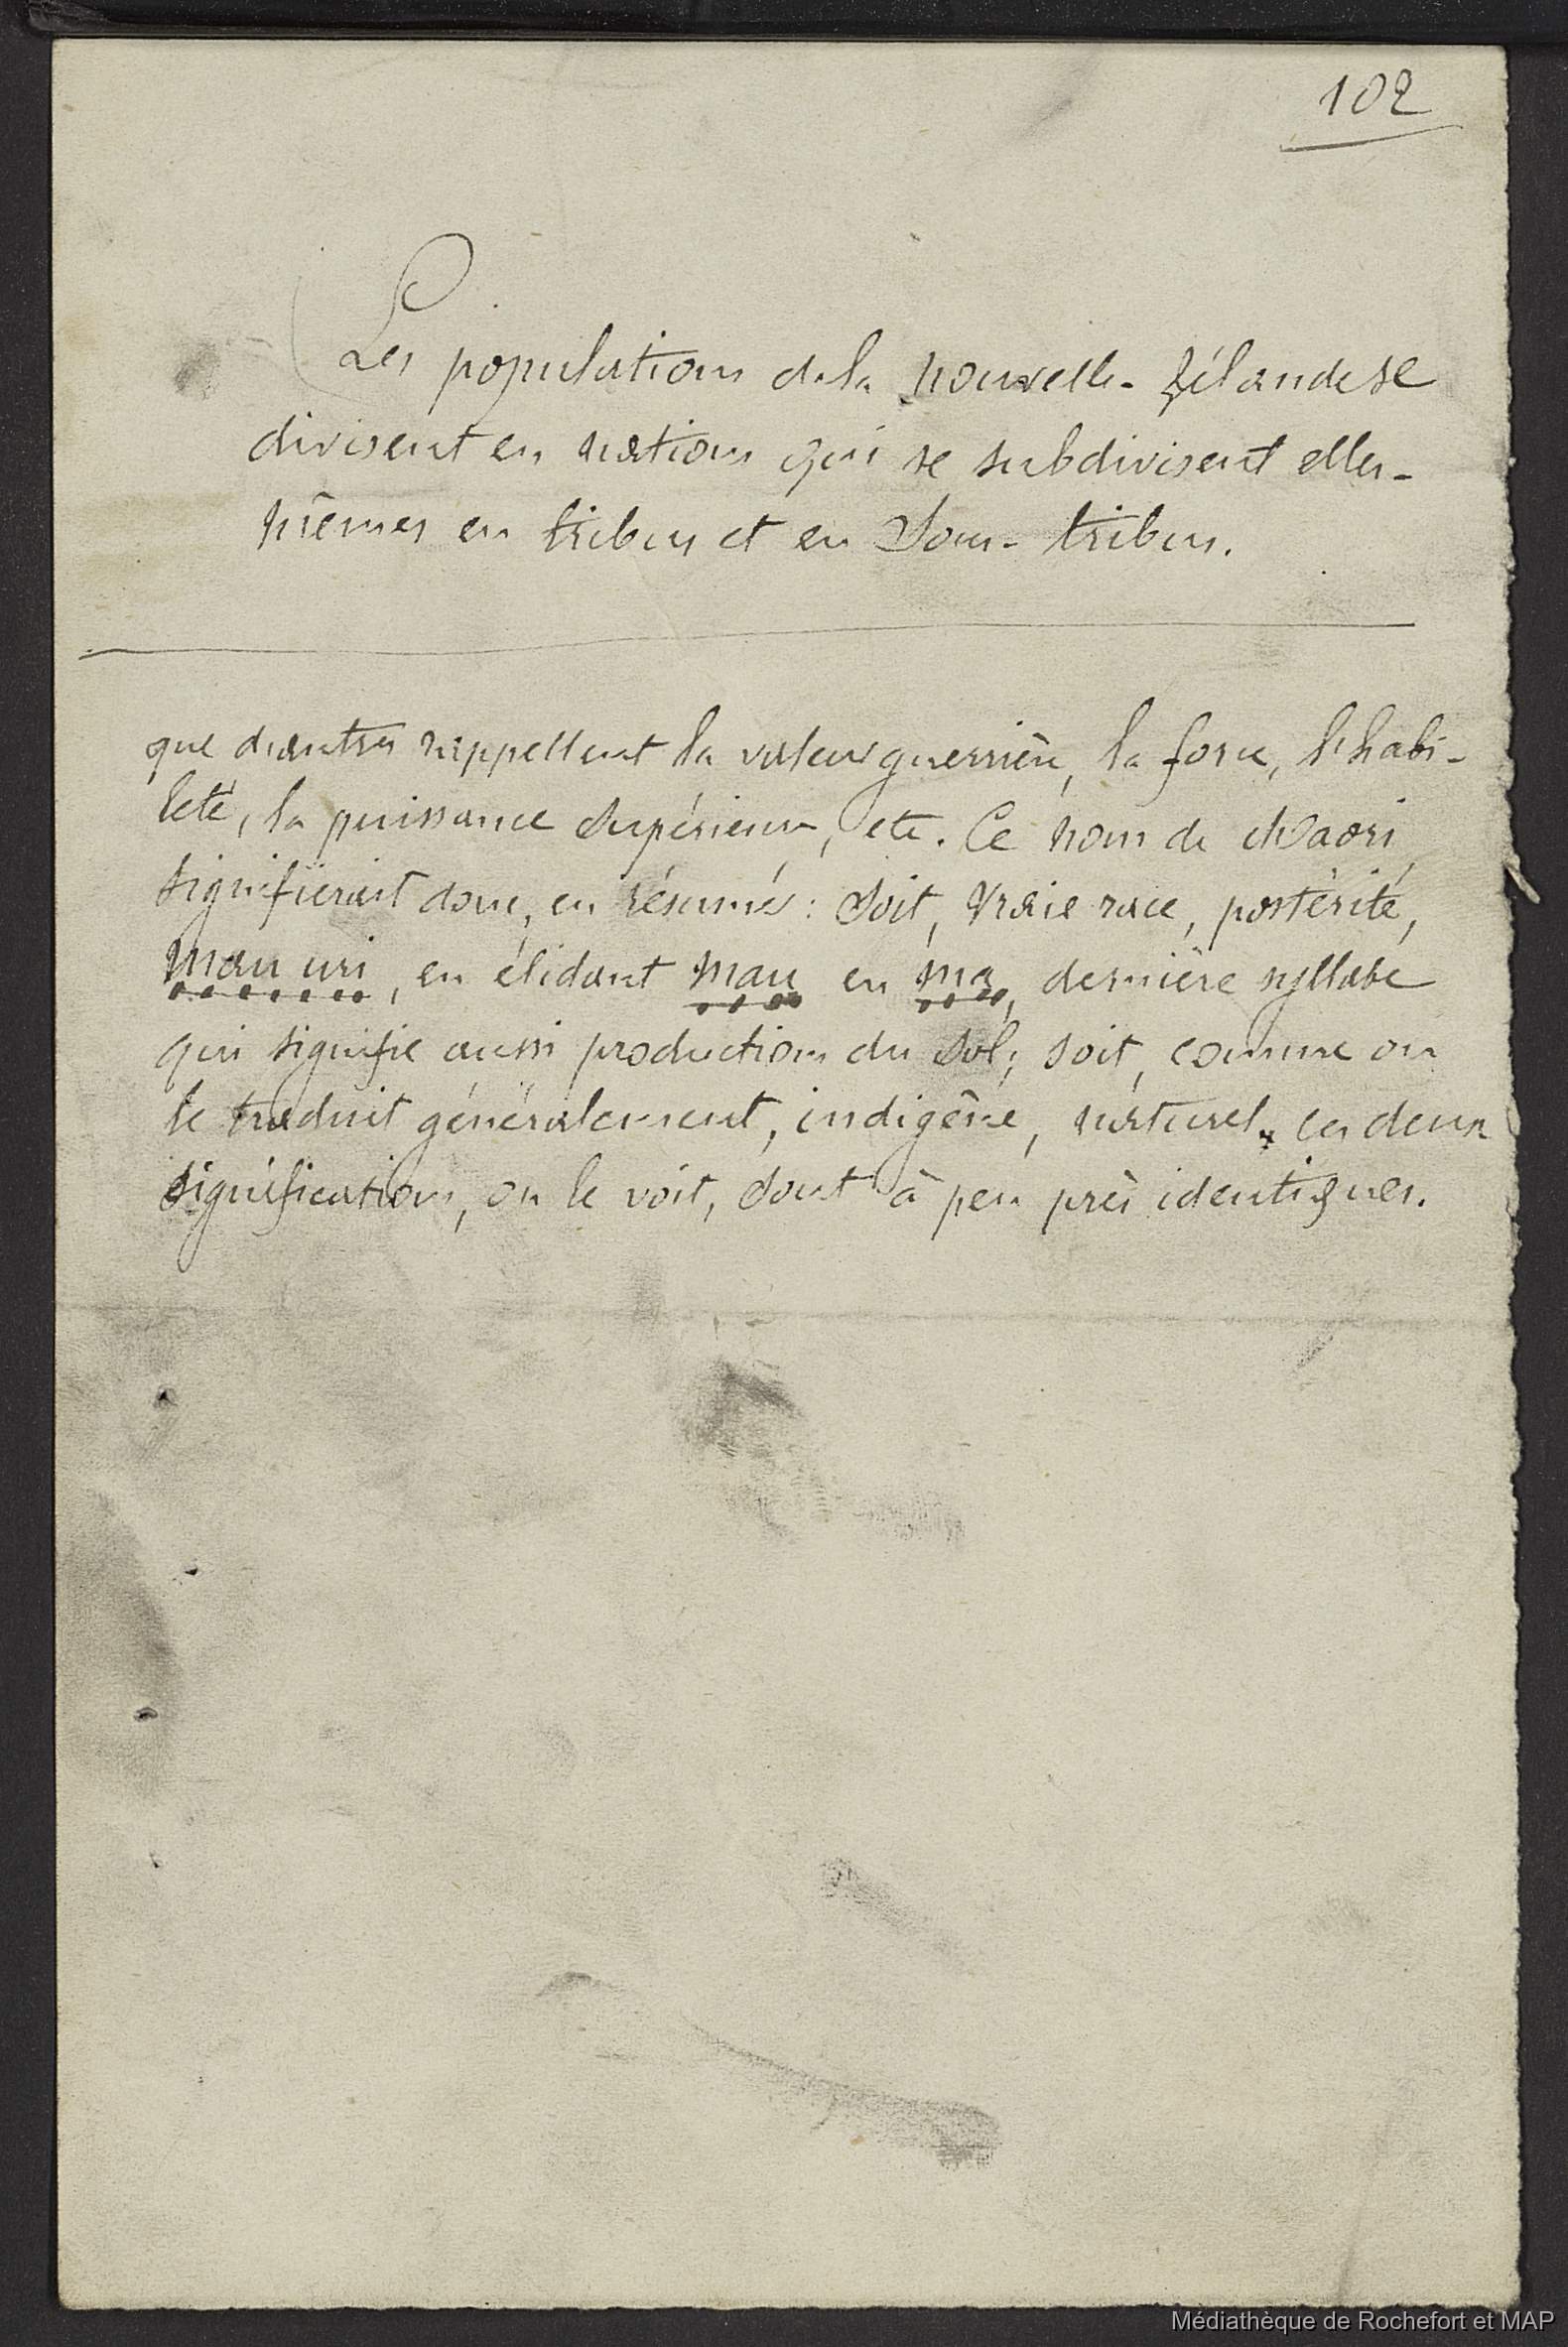 102
Les populations de la Nouvelle-Zélande se
divisent en nations qui se subdivisent elles-
mêmes en tribus et en sous-tribus.
que d'autres rappellent la valeur guerrière, la force, l'habi-
leté, la puissance supérieure, etc. Ce nom de Maori
signifierait donc, en résumé : soit, vraie race, postérité,
mau uri, en élidant mau en ma, dernière syllabe
qui signifie aussi productions du sol; soit, comme on
le traduit généralement, indigène, naturel. Ces deux
significations, on le voit, sont à peu près identiques.
Médiathèque de Rochefort et MAP